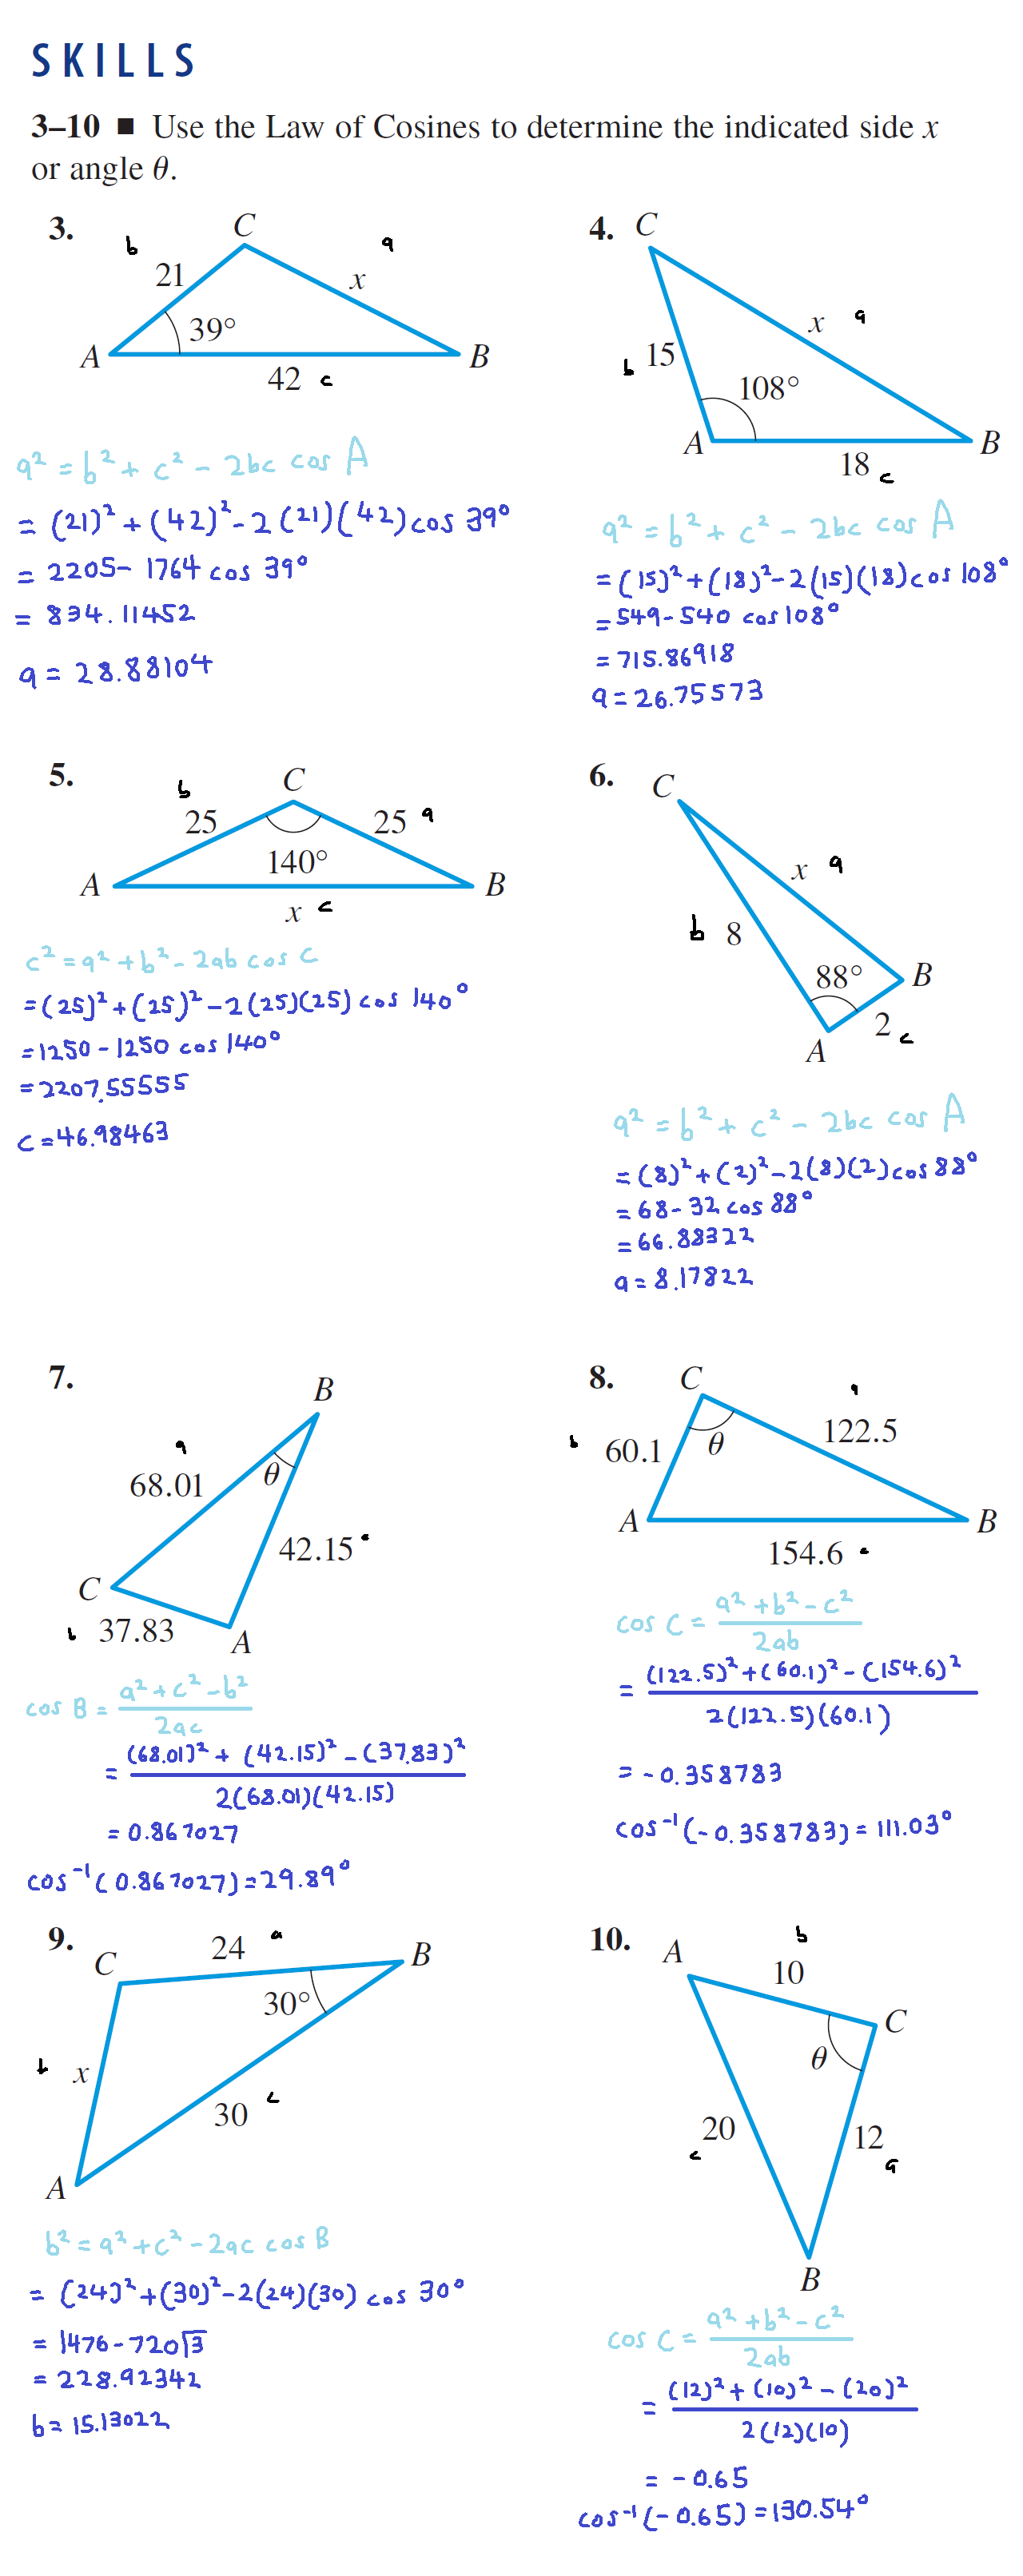 SKILLS
3–10 ■ Use the Law of Cosines to determine the indicated side x
or angle θ.
3.
C
b
a
21
x
39°
A
B
42 c
a² = b² + c² - 2bc cos A
= (21)² + (42)² - 2(21)(42) cos 39°
= 2205 - 1764 cos 39°
= 834.11452
a = 28.88104
4.
C
x a
b 15
108°
A
B
18 c
a² = b² + c² - 2bc cos A
= (15)² + (18)² - 2(15)(18) cos 108°
= 549 - 540 cos 108°
= 715.86918
a = 26.75573
5.
C
b
25
25 a
140°
A
B
x c
c² = a² + b² - 2ab cos C
= (25)² + (25)² - 2(25)(25) cos 140°
= 1250 - 1250 cos 140°
= 2207.55555
c = 46.98463
6.
C
x a
b 8
88°
B
2 c
A
a² = b² + c² - 2bc cos A
= (8)² + (2)² - 2(8)(2) cos 88°
= 68 - 32 cos 88°
= 66.88322
a = 8.17822
7.
B
a
68.01
θ
42.15 c
C
b 37.83
A
cos B = a² + c² - b² / 2ac
= (68.01)² + (42.15)² - (37.83)² / 2(68.01)(42.15)
= 0.867027
cos⁻¹(0.867027) = 29.89°
8.
C
a
122.5
b 60.1
θ
A
B
154.6 c
cos C = a² + b² - c² / 2ab
= (122.5)² + (60.1)² - (154.6)² / 2(122.5)(60.1)
= -0.358783
cos⁻¹(-0.358783) = 111.03°
9.
24 a
C
B
30°
b x
c
30
A
b² = a² + c² - 2ac cos B
= (24)² + (30)² - 2(24)(30) cos 30°
= 1476 - 720√3
= 228.92342
b = 15.13022
10.
b
A
10
C
θ
20
c
12
a
B
cos C = a² + b² - c² / 2ab
= (12)² + (10)² - (20)² / 2(12)(10)
= -0.65
cos⁻¹(-0.65) = 130.54°